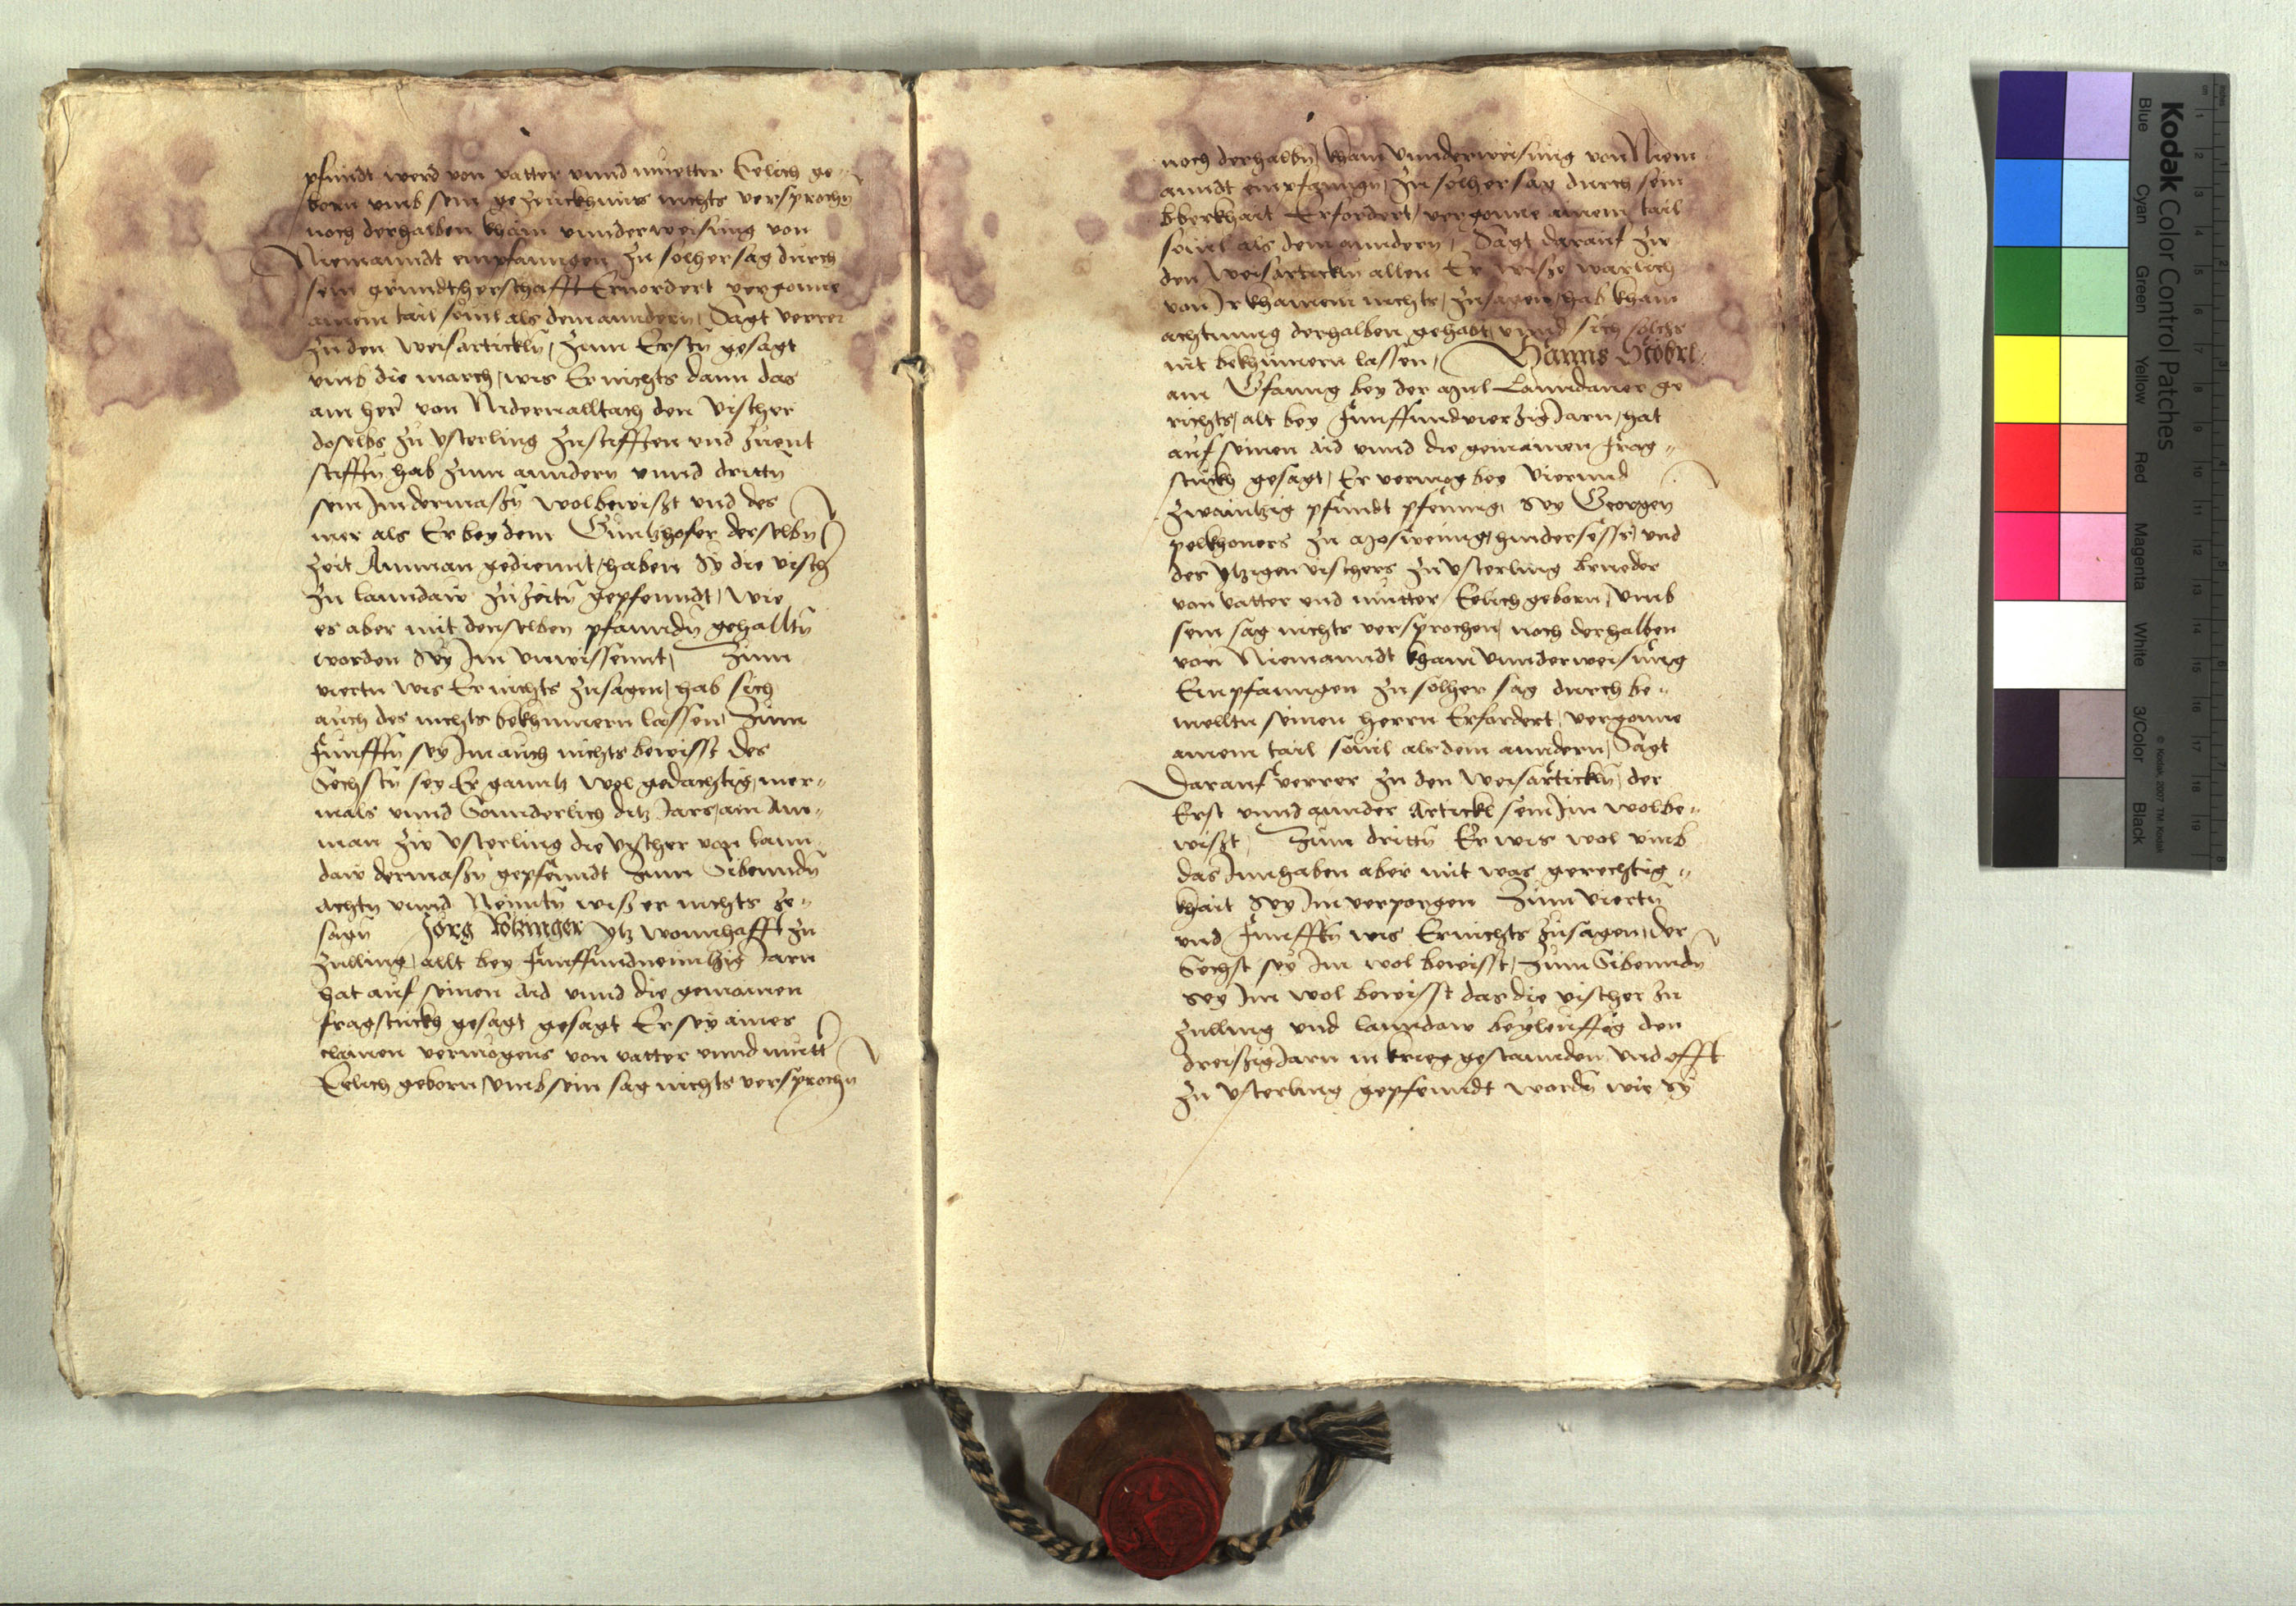 pfundt werd von vatter vnnd muetter Eelich ge-
born vmb sein gezeuckhnus nichts versprochn
noch derhalben khain vnnderweisung von
Niemanndt empfanngen zu solher sag durch
sein grundtherschafft Ernordert vergonne
ainem tail souil als dem anndern, Sagt verrer
zu den weisarticklñ, zum Erstñ gesagt
vmb die march, wis Er nichts dann das
ain her von Nidernalltach den vischer
doselbs zu vsterling zustifften vnd zuent
stifftñ hab zum anndern vnnd drittñ
sein Im dermaßñ wolbewißt vnd des
mer als Er bey dem Guntzhofer derselbñ
zeit Amman gediennt, haben Sy die visch
zu lanndaw zuzeitñ gepfenndt, wie
es aber mit denselben pfanndñ gehalltñ
worden Sey Im vnwissennt, Zum
viertñ wis Er nichts zusagen, hab sich
auch des nichts bekhumern lassen, Zum
Funfftñ sey Im auch nichts bewisst des
Sechstñ sey Er ganntz wol gedachtig, mer-
mals vnnd Sonnderlich ditz Jars, ain Am-
man zw vsterling die vischer von lann
daw dermaßñ gepfenndt Zum Sibenndñ
Achtñ vnnd Neuntñ wiß er nichts ze-
sagñ Jorg Kötzinger ytz wonnhafft zu
Zulling, allt bey Funffundneuntzig Jarn
hat auf seinen Aid vnnd die gemainen
fragstuckh gesagt gesagt Er sey aines
clainen vermogens von vatter vnnd mutt
Eelich geborn, vmb sein sag nichts versprochñ
noch derhalbñ, kham vnnderweisung von Niem
anndt empfanngñ, Zu solher sag durch sein
Oberkhait Erfordert, vergonne ainem tail
souil als dem anndern, Sagt darauf zu
den weisarticklñ allen Er wisse warlich
von Ir khainem nichts, zusagen, hab kham
achtnung derhalben gehabt, vnnd sich solchs
nit bekhumern lassen, Hanns Stöbrl
am Gfanng bey der Mul Lanndauer ge
richts, alt bey Funffundvierzig Jarn, hat
auf seinen Aid vnnd die gemainen Frag-
stuckh gesagt, Er vermog bey Vierund
zwaintzig pfundt pfening, Sey Georgen
pelkhoners zu Mosweing, hindersesse, vnd
des ytzigen vischers zu vsterling brueder
von vatter vnd mutter Eelich geborn, vmb
sein sag nichts versprochen, noch derhalben
von Niemanndt kham vnnderweisung
Empfanngen zu solher sag durch be-
melltn seinen herrn Erfordert, vergonne
ainem tail souil als dem anndern, Sagt
Darauf verrer zu den weisarticklñ, der
Erst vnnd annder Artickl sein Im wolbe-
wißt, Zum drittñ Er wis wol vmb
das Innhaben aber mit was gerechtig-
khait Sey Im verporgen Zum viertñ
vnd Funfftñ wis Er nichts zusagen, der
Sechst sey Im wol bewisst, Zum Sibenndñ
sey Im wol bewisst das die vischer zu
Zulling vnd lanndaw beyleuffig den
dreißig Jarn in krieg gestannden vnd offt
zu vsterling gepfenndt wordñ wie sy
Kodak Color Control Patches
Blue Cyan Green Yellow Red Magenta White 3/Color Black
© Kodak, 2007 TM: Kodak